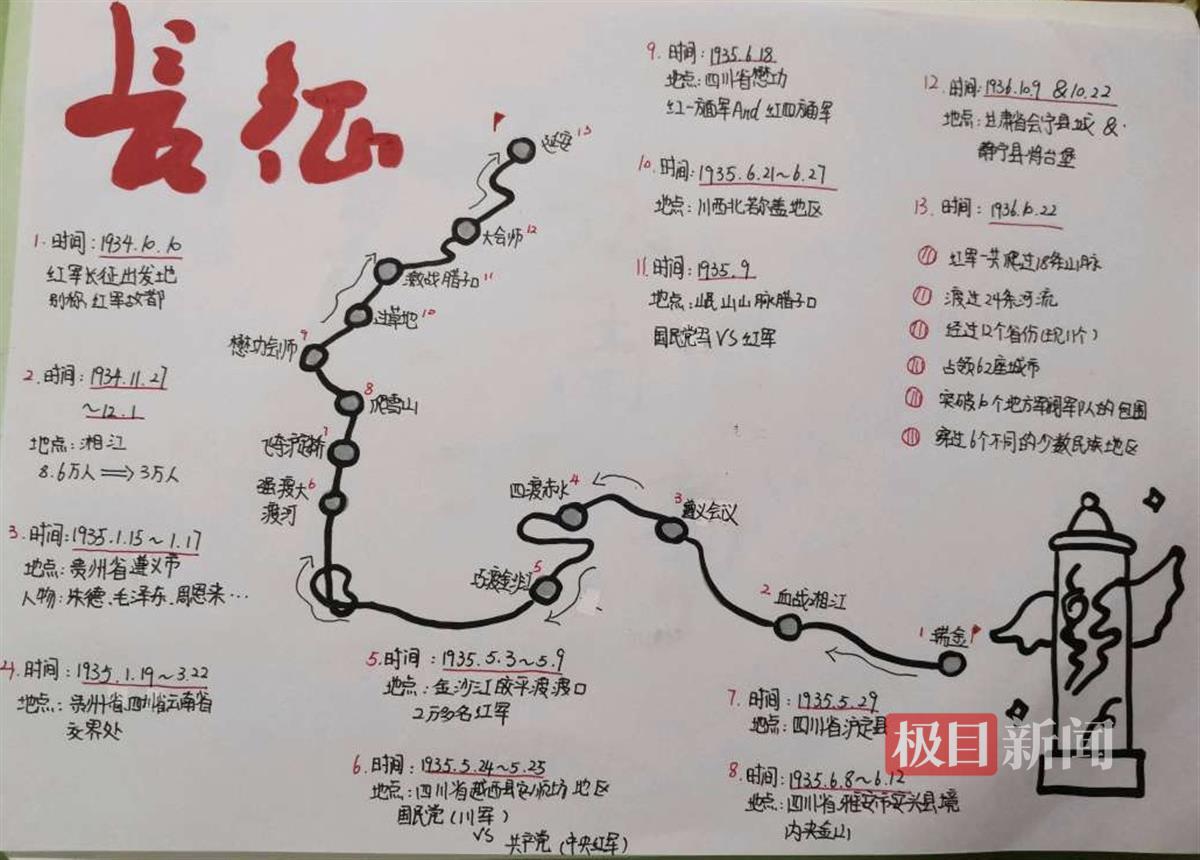 長征
1. 时间:1934.10.10
红军长征出发地
别称:红军故都
2. 时间:1934.11.27
~12.1
地点:湘江
8.6万人⟹3万人
3. 时间:1935.1.15~1.17
地点:贵州省遵义市
人物:朱德、毛泽东、周恩来…
4. 时间:1935.1.19~3.22
地点:贵州省、四川省云南省
交界处
延安 13
大会师 12
激战腊子口 11
过草地 10
懋功会师 9
8 爬雪山
飞夺泸定桥 7
强渡大 6
渡河
巧渡金沙江 5
四渡赤水 4
3 遵义会议
2 血战湘江
1 瑞金
5. 时间:1935.5.3~5.9
地点:金沙江皎平渡渡口
2万多名红军
6. 时间:1935.5.24~5.25
地点:四川省越西县安顺场地区
国民党(川军)
VS 共产党(中央红军)
7. 时间:1935.5.29
地点:四川省泸定县
8. 时间:1935.6.8~6.12
地点:四川省雅安市安兴县境
内夹金山
9. 时间:1935.6.18
地点:四川省懋功
红一方面军And红四方面军
10. 时间:1935.6.21~6.27
地点:川西北若尔盖地区
11. 时间:1935.9
地点:岷山山脉腊子口
国民党军VS红军
12. 时间:1936.10.9 &10.22
地点:甘肃省会宁县城 &
静宁县将台堡
13. 时间:1936.10.22
红军一共爬过18条山脉
渡过24条河流
经过12个省份(现11个)
占领62座城市
突破10个地方军阀军队的包围
穿过6个不同的少数民族地区
极目新闻